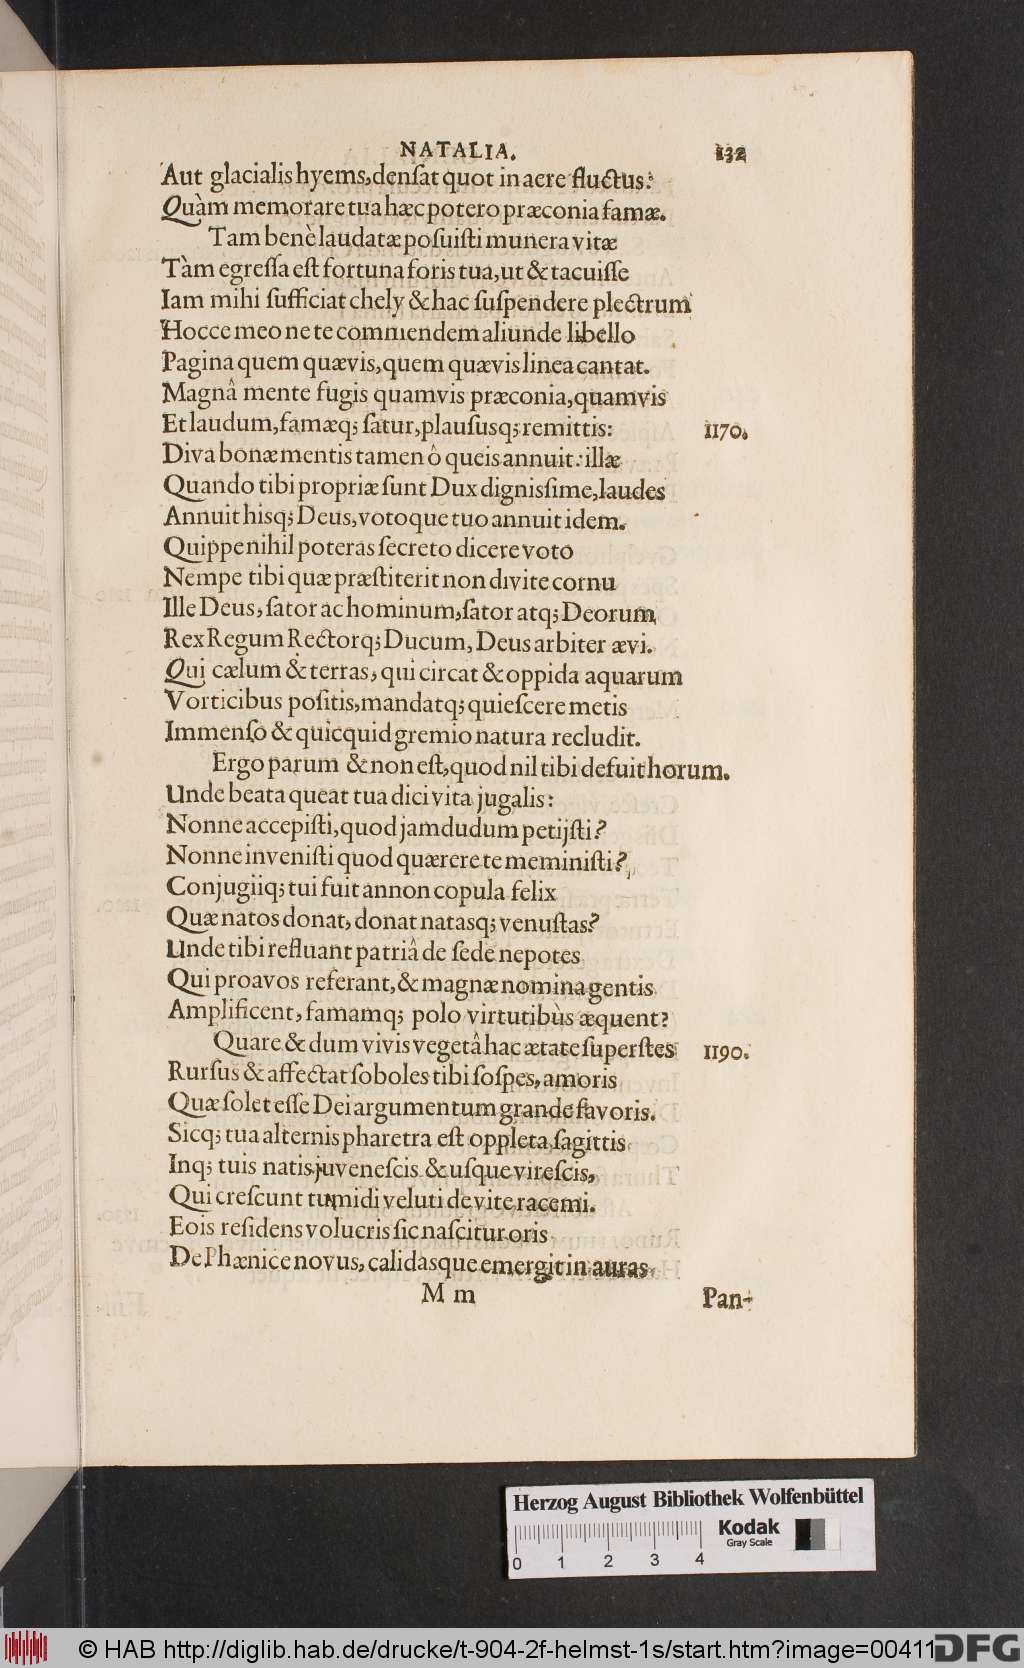 NATALIA. 132
Aut glacialis hyems, denſat quot in aere fluctus:
Quàm memorare tua hæc potero præconia famæ.
Tam benè laudatæ poſuiſti munera vitæ
Tàm egreſſa eſt fortuna foris tua, ut & tacuiſſe
Iam mihi ſufficiat chely & hac ſuſpendere plectrum
Hocce meo ne te commendem aliunde libello
Pagina quem quævis, quem quævis linea cantat.
Magnâ mente fugis quamvis præconia, quamvis
Et laudum, famæq; ſatur, plauſusq; remittis: 1170.
Diva bonæ mentis tamen ô queis annuit: illæ
Quando tibi propriæ ſunt Dux digniſsime, laudes
Annuit hisq; Deus, votoque tuo annuit idem.
Quippe nihil poteras ſecreto dicere voto
Nempe tibi quæ præſtiterit non divite cornu
Ille Deus, ſator ac hominum, ſator atq; Deorum,
Rex Regum Rectorq; Ducum, Deus arbiter ævi.
Qui cælum & terras, qui circat & oppida aquarum
Vorticibus poſitis, mandatq; quieſcere metis
Immenſo & quicquid gremio natura recludit.
Ergo parum & non eſt, quod nil tibi defuit horum.
Unde beata queat tua dici vita jugalis:
Nonne accepiſti, quod jamdudum petijſti?
Nonne inveniſti quod quærere te meminiſti?
Conjugiiq; tui fuit annon copula felix
Quæ natos donat, donat natasq; venuſtas?
Unde tibi refluant patriâ de ſede nepotes
Qui proavos referant, & magnæ nomina gentis
Amplificent, famamq; polo virtutibùs æquent?
Quare & dum vivis vegetâ hac ætate ſuperſtes 1190.
Rurſus & affectat ſoboles tibi ſoſpes, amoris
Quæ ſolet eſſe Dei argumentum grande favoris.
Sicq; tua alternis pharetra eſt oppleta ſagittis
Inq; tuis natis juveneſcis & uſque vireſcis,
Qui creſcunt tumidi veluti de vite racemi.
Eois reſidens volucris ſic naſcitur oris
De Phænice novus, calidasque emergit in auras
M m Pan-
Herzog August Bibliothek Wolfenbüttel
Kodak
Gray Scale
0 1 2 3 4
© HAB http://diglib.hab.de/drucke/t-904-2f-helmst-1s/start.htm?image=00411
DFG